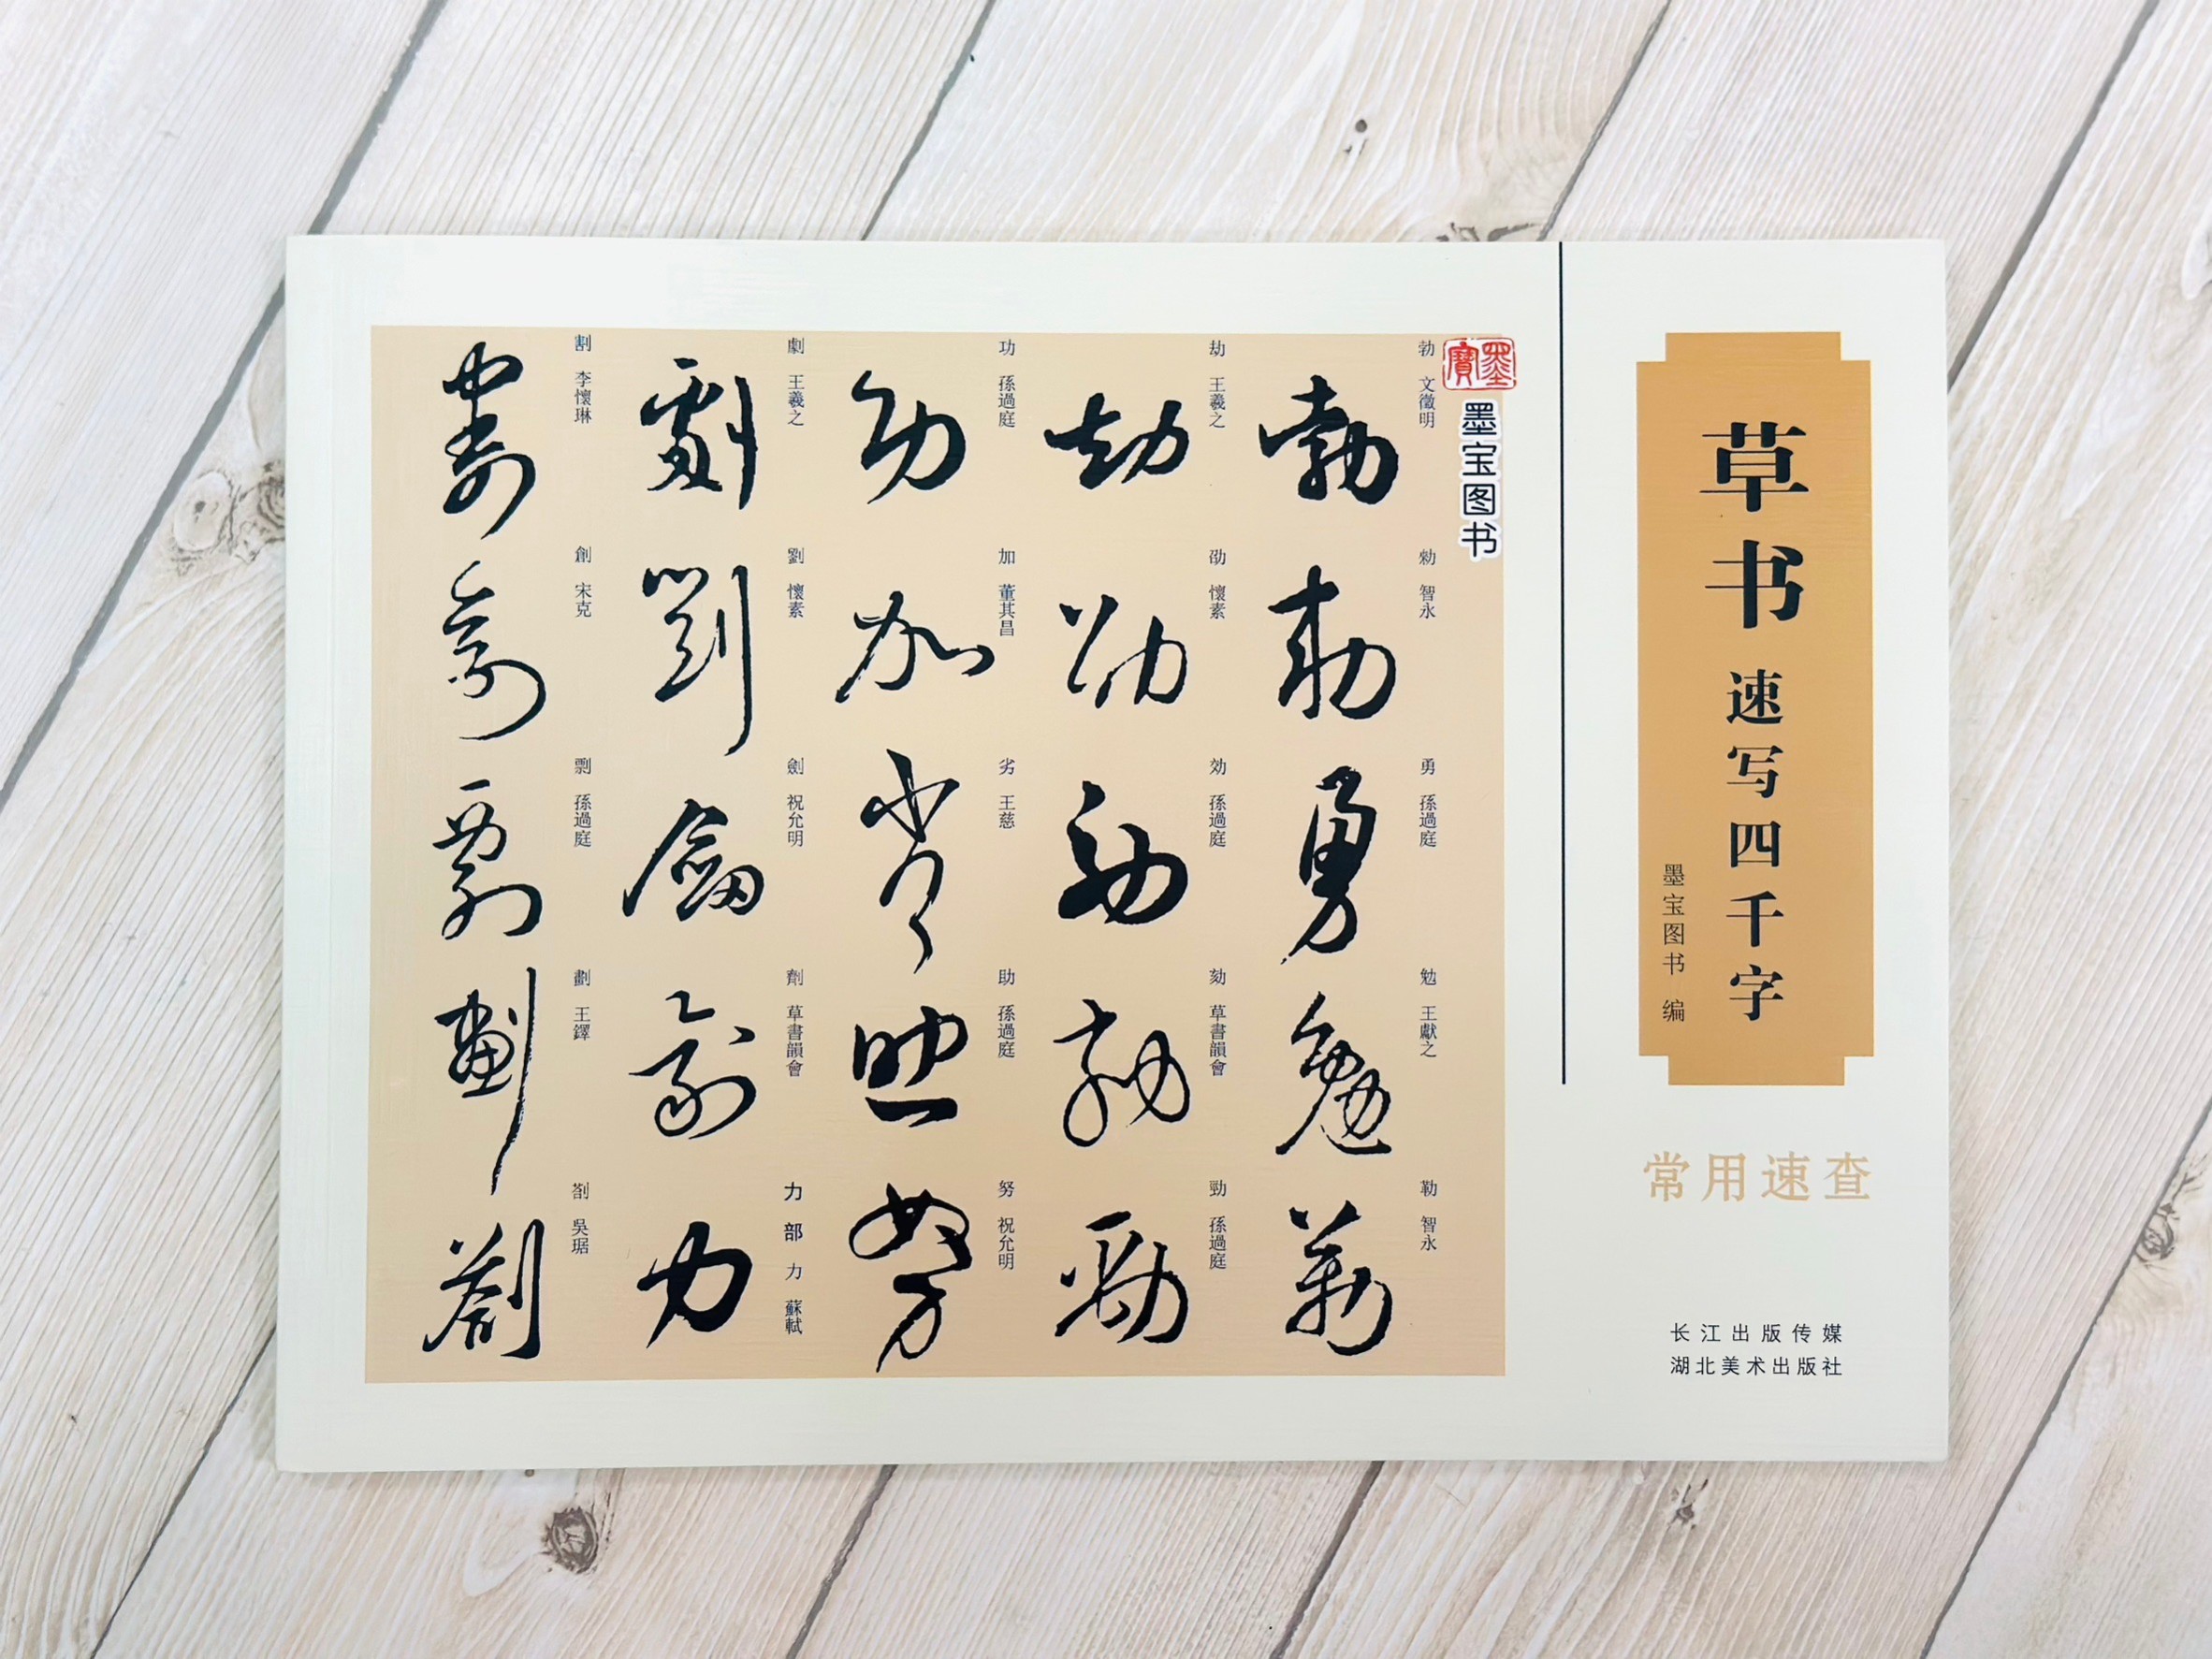 草书速写四千字
墨宝图书 编
常用速查
长江出版传媒
湖北美术出版社
墨寶
墨宝图书
割 李懷琳
創 宋克
剽 孫過庭
劃 王鐸
劄 吳琚
劇 王羲之
劉 懷素
劍 祝允明
劑 草書韻會
力部 力 蘇軾
功 孫過庭
加 董其昌
劣 王慈
助 孫過庭
努 祝允明
劫 王羲之
劭 懷素
効 孫過庭
劾 草書韻會
勁 孫過庭
勃 文徵明
勑 智永
勇 孫過庭
勉 王獻之
勒 智永